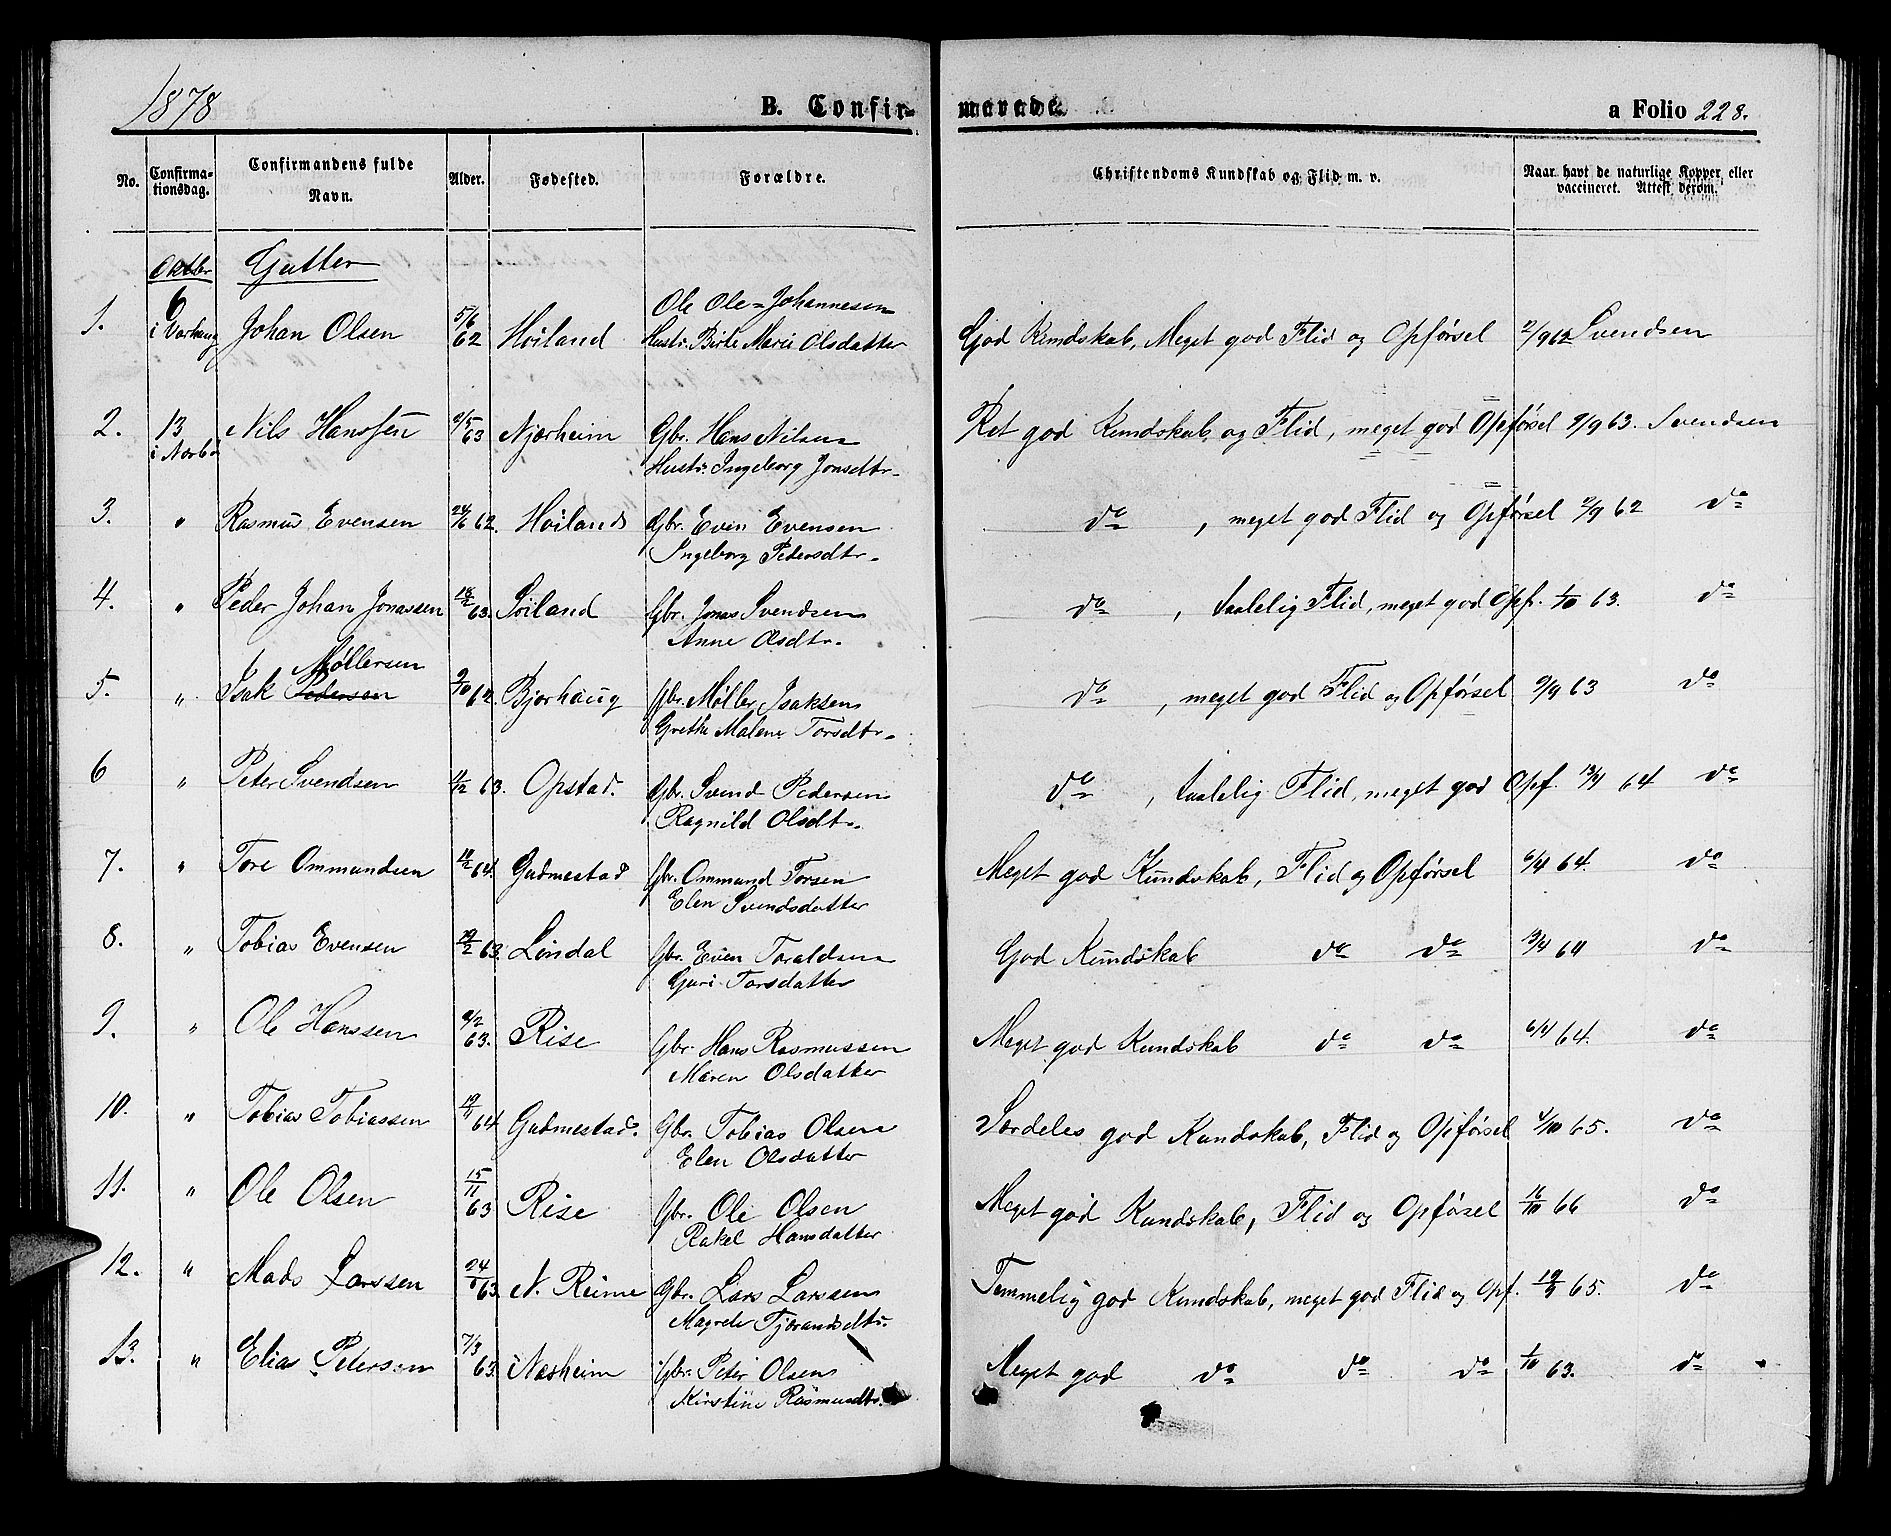 1878 B. Confirmerede. a Folio 228.
No. Confirmationsdag. Confirmandens fulde Navn. Alder. Fødested. Forældre. Christendoms Kundskab og Flid m. v. Naar havt de naturlige Kopper eller vaccineret. Attest derom.
Oktbr Gutter
Ole Ole-Johannesen
1. 6 i Varhaug Johan Olsen 5/6 62 Höiland Hustr. Birte Marie Olsdatter God Kundskab, Meget god Flid og Opførsel 2/9 62 Svendsen
2. 13 i Nærbö Nils Hanssen 2/5 63 Njærheim Gbr. Hans Nilsen Ret god Kundskab og Flid, meget god Opførsel 9/9 63. Svendsen
Hustr. Ingeborg Jonsdtr.
3. " Rasmus Evensen 24/6 62. Höiland Gbr. Even Evensen do, meget god Flid og Opførsel 2/9 62 do
Ingeborg Pedersdtr.
4. " Peder Johan Jonassen 18/2 63. Söiland Gbr. Jonas Svendsen do, taalelig Flid, meget god Opf. 1/10 63. do
Anne Olsdtr.
Møllersen
5. " Isak Pedersen 9/10 62. Bjørhaug Gbr. Møller Isaksen do, meget god Flid og Opførsel 9/9 63 do
Grethe Malene Torsdtr.
6 " Peter Svendsen 63. Opstad. Gbr. Svend Pedersen do, taalelig Flid, meget god Opf. 13/4 64 do
Ragnild Olsdtr.
7. " Tore Ommundsen 64. Gudmestad Gbr. Ommund Torsen Meget god Kundskab, Flid og Opførsel 6/4 64. do
Elen Svendsdatter
8. " Tobias Evensen 63. Lindal Gbr. Even Toraldsen God Kundskab do do 13/4 64 do
Guri Torsdatter
9. " Ole Hanssen 63. Rise Gbr. Hans Rasmussen Meget god Kundskab do do 6/4 64. do
Maren Olsdatter
10. " Tobias Tobiassen 19/11 64 Gudmestad. Gbr. Tobias Olsen Særdeles god Kundskab, Flid og Opførsel 4/10 65. do
Elen Olsdatter
11. " Ole Olsen 15/11 63 Rise Gbr. Ole Olsen Meget god Kundskab, Flid og Opførsel 16/10 66 do
Rakel Hansdatter
12. " Mads Larssen 63. N. Reime Gbr. Lars Larssen Temmelig god Kundskab, meget god Flid og Opf. 65. do
Magrete Tjærandsdtr.
13. " Elias Petersen 7/3 63. Næsheim Gbr. Peter Olsen Meget god do do do 1/10 63. do
Kirstine Rasmusdtr.